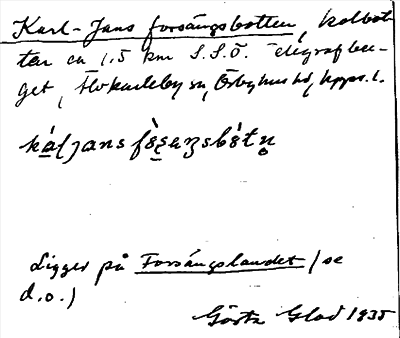 Karl-Jans forsängsbotten, kolbot-
ten ca 1,5 km S.S.Ö. Telegrafber-
get, Älvkarleby sn, Örbyhus hd, Upps. l.
Ligger på Forsängslandet (se
d.o.)
Gösta Glad 1935